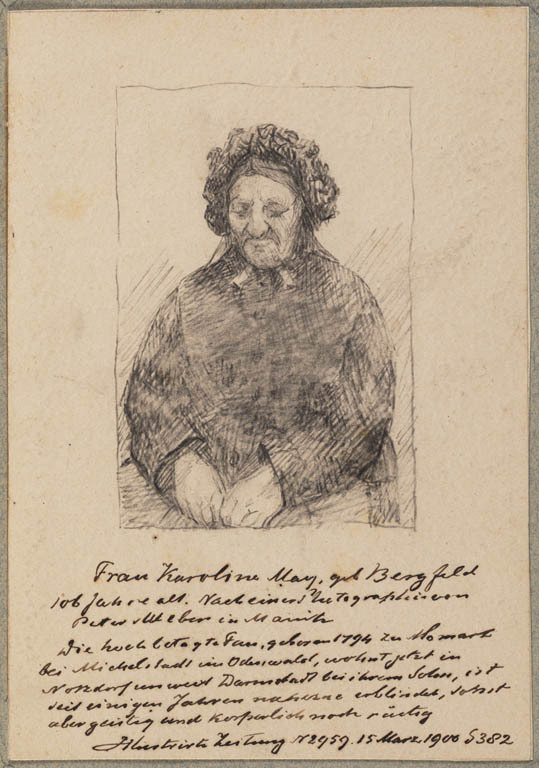 Frau Karoline May, geb Bergfeld
106 Jahre alt. Nach einer Photographie von
Peter Weber in
Die hochbetagte Frau, geboren 1794 zu Momart
bei Michelstadt im Odenwald, wohnt jetzt in
unweit Darmstadt bei ihrem Sohn, ist
seit einigen Jahren nahezu erblindet, sonst
aber geistig und körperlich noch rüstig
Illustrirte Zeitung N 2959. 15 März 1900 S 382